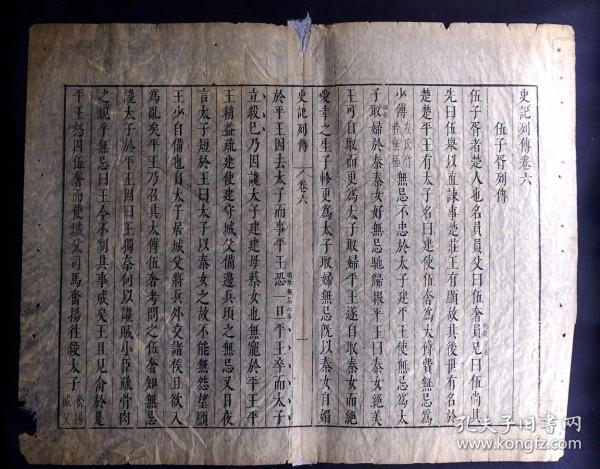 史記列傳卷六
伍子胥列傳
伍子胥者楚人也名員員父曰伍奢員兄曰伍尚其
先曰伍舉以直諫事楚莊王有顯故其後世有名於
楚楚平王有太子名曰建使伍奢爲太傅費無忌爲
少傅無忌不忠於太子建平王使無忌爲太
子取婦於秦秦女好無忌馳歸報平王曰秦女絕美
王可自取而更爲太子取婦平王遂自取秦女而絕
愛幸之生子軫更爲太子取婦無忌旣以秦女自媚
史記列傳
卷六
一
於平王因去太子而事平王恐一旦平王卒而太子
立殺已乃因讒太子建建母蔡女也無寵於平王平
王稍益疏建使建守城父備邊兵頃之無忌又日夜
言太子短於王曰太子以秦女之故不能無怨望願
王少自備也自太子居城父將兵外交諸侯且欲入
爲亂矣平王乃召其太傅伍奢考問之伍奢知無忌
讒太子於平王因曰王獨奈何以讒賊小臣疏骨肉
之親乎無忌曰王今不制其事成矣王且見禽於是
平王怒因伍奢而使城父司馬奮揚往殺太子奮揚
孔夫子旧书网
www.kongfz.com